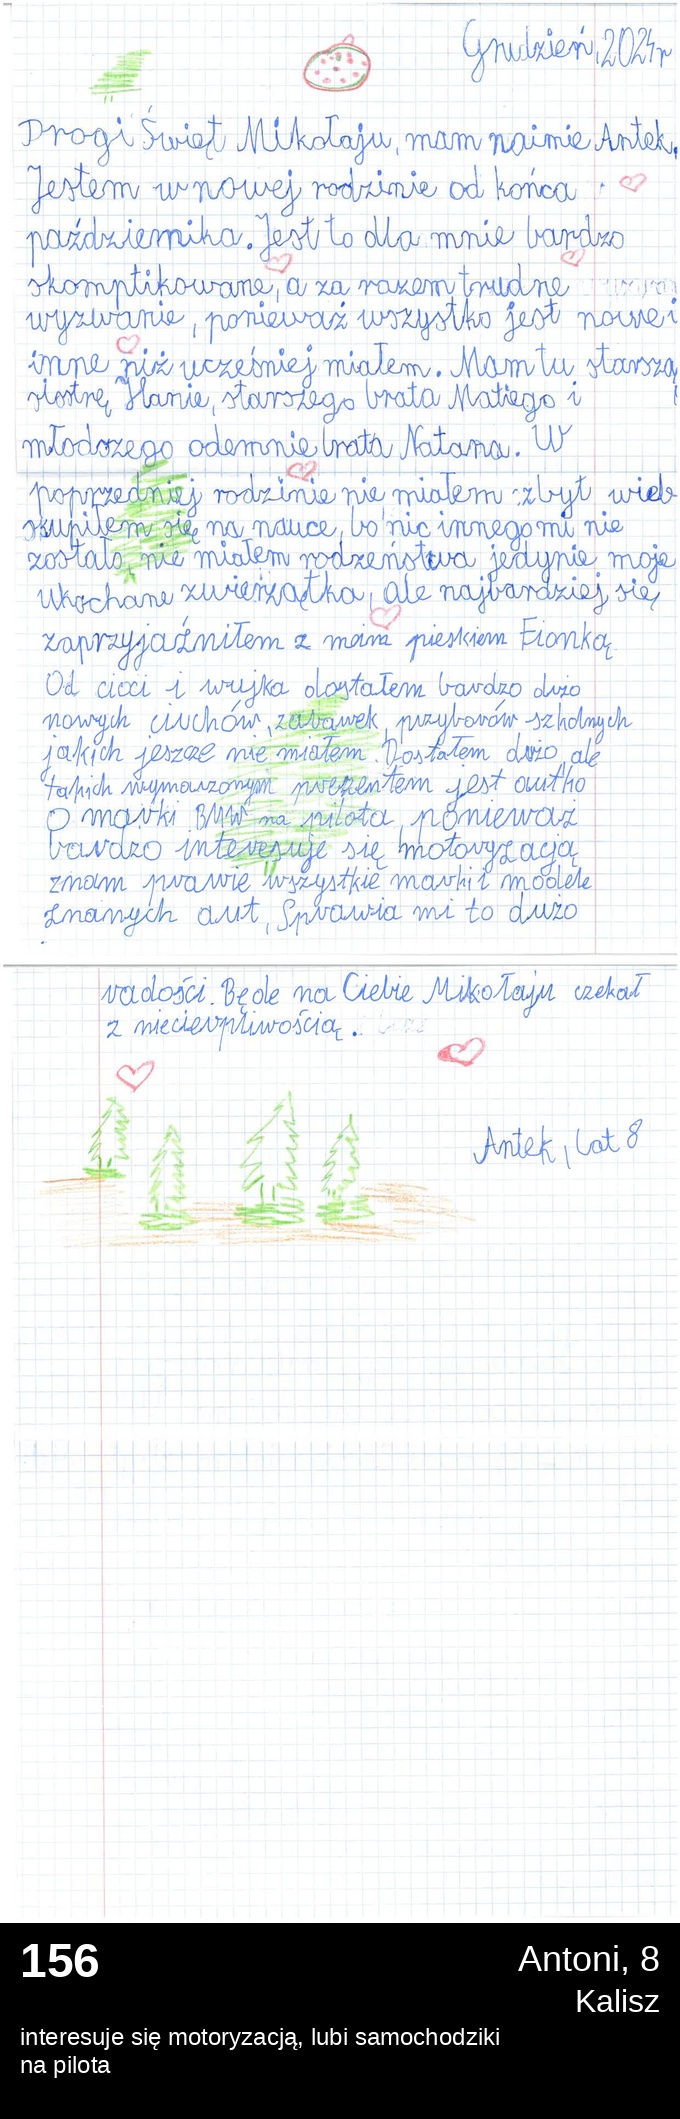 Grudzień, 2024r
Drogi Święt Mikołaju, mam naimie Antek.
Jestem w nowej rodzinie od końca
października. Jest to dla mnie bardzo
skomplikowane, a za razem trudne
wyzwanie, ponieważ wszystko jest nowe i
inne niż ucześniej miałem. Mam tu starszą
siostrę Hanie, starszego brata Matiego i
młodszego odemnie brata Natana. W
poprzedniej rodzinie nie miałem zbyt wiele
skupiłem się na nauce, bo nic innego mi nie
zostało, nie miałem rodzeństwa jedynie moje
ukochane zwierzątka, ale najbardziej się
zaprzyjaźniłem z moim pieskiem Fionką
Od cioci i wujka dostałem bardzo dużo
nowych ciuchów, zabawek, przyborów szkolnych
jakich jeszcze nie miałem. Dostałem dużo ale
takich wymarzonym prezentem jest autko
o marki BMW na pilota, ponieważ
bardzo interesuje się motoryzacją
znam prawie wszystkie marki i modele
znanych aut, Sprawia mi to dużo
radości. Będe na Ciebie Mikołaju czekał
z niecierpliwością.
Antek, lat 8
156
Antoni, 8
Kalisz
interesuje się motoryzacją, lubi samochodziki
na pilota